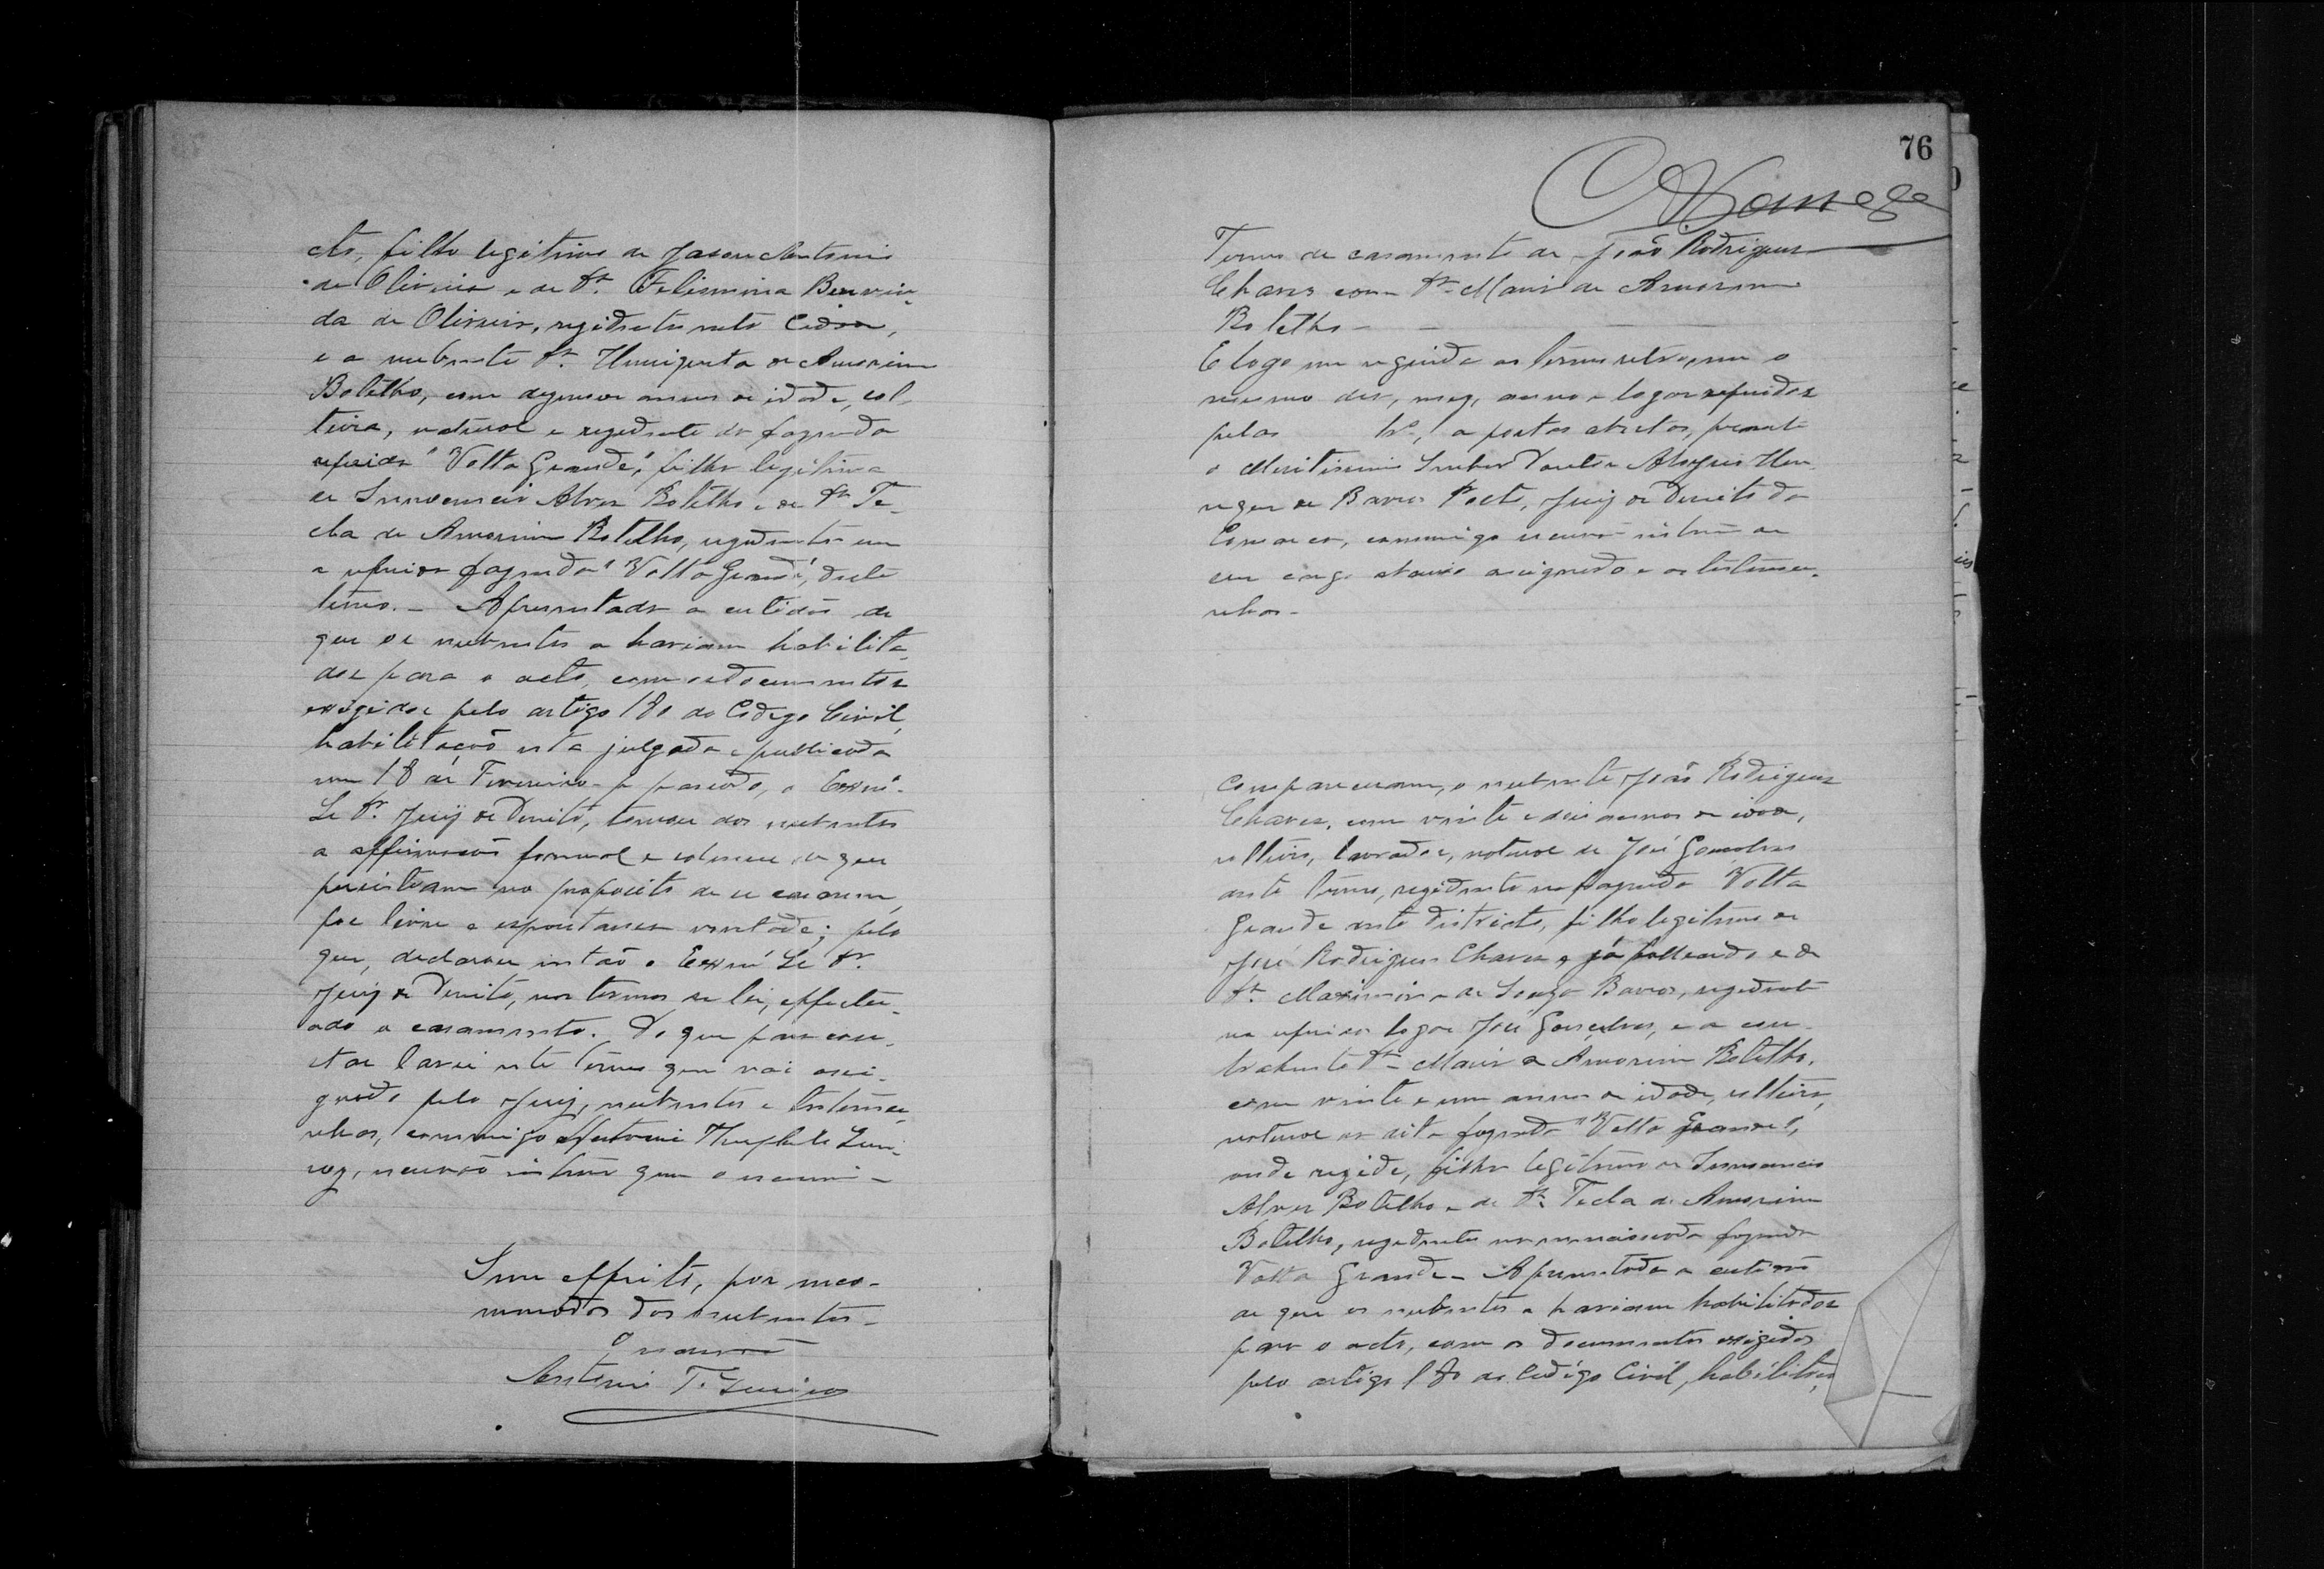 cto, filho legitimo de Jason Antonio
de Oliveira e de Dª. Felismina Bemvin-
da de Oliveira, residentes neste
e a nubente Dª. Henriqueta de Amorim
Botelho, com dezenove annos de idade, sol-
teira, natural e residente da fazenda
referida "Volta Grande", filha legitima
de Innocencio Alves Botelho e de Dª Te-
cla de Amorim Botelho, residentes em
a referida fazenda "Volta Grande", deste
termo. - Apresentada a certidão de
que os nubentes se haviam habilita-
dos para o acto, com os documentos
exigidos pelo artigo 180 do Codigo Civil,
habilitação esta julgada e publicada
em 18 de Fevereiro p. passado, o Exmº.
Sr Dr. Juiz de Direito, tomou dos nubentes
a affirmação formal e solemne de que
persistiam no proposito de se casarem,
por livre e espontanea vontade; pelo
que, declarou então o Exmº Sr Dr.
Juiz de Direito, nos termos da lei, effectu-
ado o casamento. Do que para cons-
tar lavrei este termo que vai assi-
gnado pelo Juiz, nubentes e testemu-
nhas, commigo Antonio Theophilo
escrivão interino que o escrevi -
Sem effeito, por incom-
modos dos nubentes -
O escrivão
Antonio T.
76
Termo de casamento de João Rodrigues
Chaves com Dª Maria de Amorim
Botelho -
E logo em seguida ao termo retro, em o
mesmo dia, mez, anno e logar referidos
pelas hs, a portas abertas, perante
o Meritissimo Senhor Doutor Aloysio Hen-
riques de Barros Porto, Juiz de Direito da
Comarca, commigo escrivão interino de
seu cargo abaixo assignado e as testemu-
nhas -
compareceram, o nubente João Rodrigues
Chaves, com vinte e seis annos de idade,
solteiro, lavrador, natural de José Gonçalves
neste termo, residente na fazenda Volta
Grande neste districto, filho legitimo de
José Rodrigues Chaves, já fallecido e de
Dª. Maximina de Souza Barros, residente
no referido logar José Gonçalves, e a con-
trahente Dª Maria de Amorim Botelho,
com vinte e um annos de idade, solteira,
natural da dita fazenda "Volta Grande",
onde reside, filha legitima de Innocencio
Alves Botelho e de Dª. Tecla de Amorim
Botelho, residentes na mencionada fazenda
Volta Grande - Apresentada a certidão
de que os nubentes se haviam habilitados
para o acto, com os documentos exigidos
pelo artigo 180 do Codigo Civil, habilitação